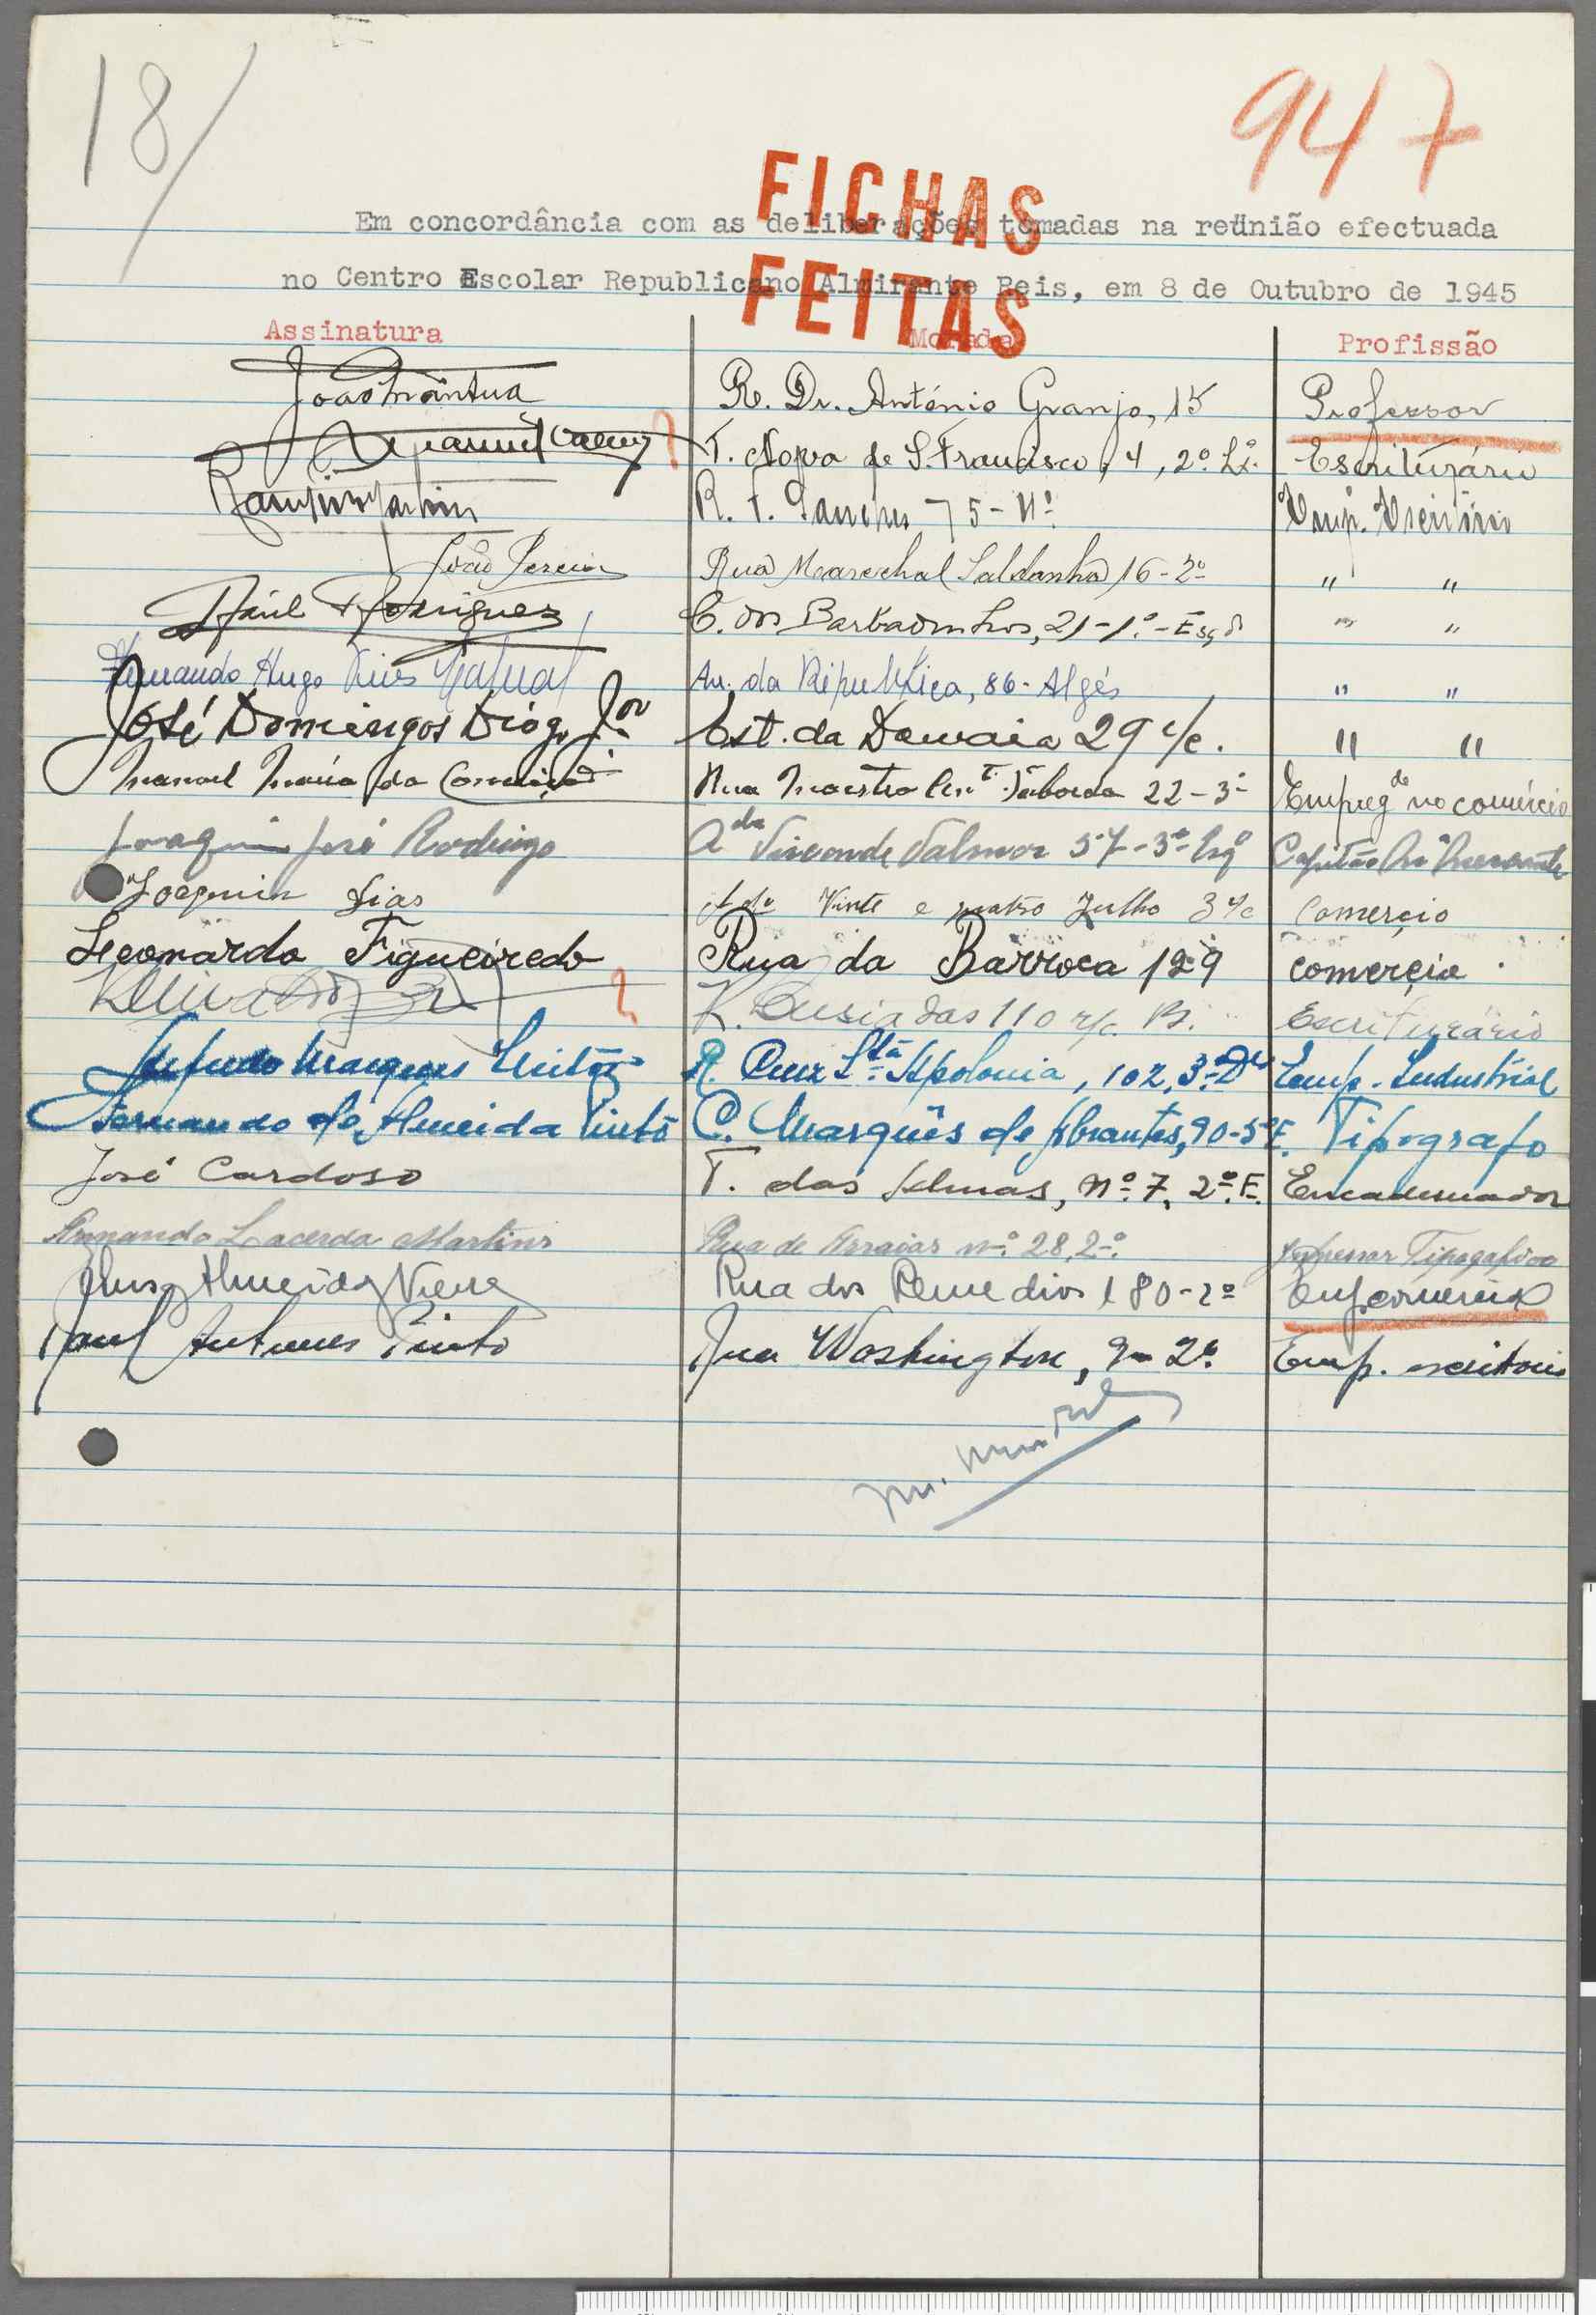 18/
947
FICHAS
FEITAS
Em concordância com as deliberações tomadas na reünião efectuada
no Centro Escolar Republicano Almirante Reis, em 8 de Outubro de 1945
Assinatura Morada Profissão
João Mântua R. Dr. António Granjo, 15 Professor
T. Nova de S. Francisco, 4, 2º Escriturário
R. 75 - Emp. Escritório
João Pereira Rua Marechal Saldanha 16-2º " "
Raúl Rodrigues C. dos Barbadinhos, 21-1º-Esqº " "
Fernando Hugo Av. da República, 86-Algés " "
José Domingos Diogo Jor Est. da Damaia 29 r/c. " "
Manuel Maria da Conceição Rua Maestro Antº Taborda 22-3º Empregdo no comércio
Joaquim José Rodrigo Ada Visconde Valmor 57-3º Esqº Capitão
Joaquim Dias Ada Vinte e quatro Julho 3 r/c Comercio
Leonardo Figueiredo Rua da Barroca 129 comercio
R. Lusiadas 110 r/c. Escriturário
Marques Leitão R. Cruz Stª Apolonia, 102, 3º Dto Emp. Industrial
Fernando de Almeida Pinto C. Marquês de Abrantes, 90-5º E. Tipografo
José Cardoso T. das Almas, nº 7, 2º E. Encadernador
Armando Lacerda Martins Rua de Arraios nº 28, 2º. Impressor Tipografico
Almeida Vieira Rua dos Remedios 180-2º Emp. comercio
Raul Antunes Pinto Rua Washington, 9-2º. Emp. escritorio